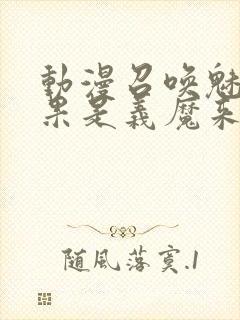 動漫召喚魅
果是義魔来
随風落寞.1